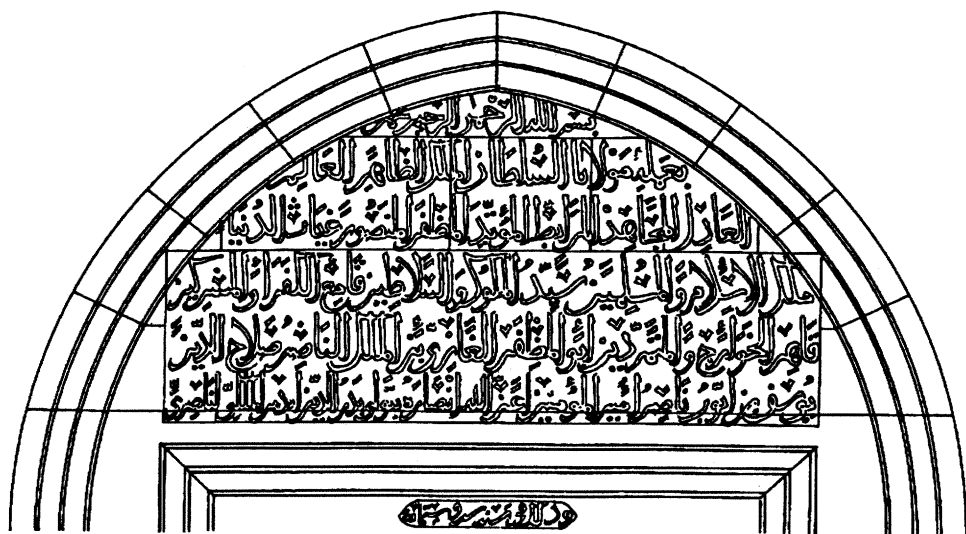 بسم الله الرحمن الرحيم
بعمله مولانا السلطان الملك الظاهر العالم
العادل المجاهد المرابط المؤيد المظفر المنصور غياث الدنيا
ملك الاسلام والمسلمين سيد الملوك والسلاطين قامع الكفرة والمشركين
قاهر الخوارج والمتمردين ابو المظفر الغازي بن الملك الناصر صلاح الدين
يوسف بن ايوب ناصر امير المؤمنين اعز الله انصاره بتولي بدر الدين ايدمر
وذلك في سنة وستمائة